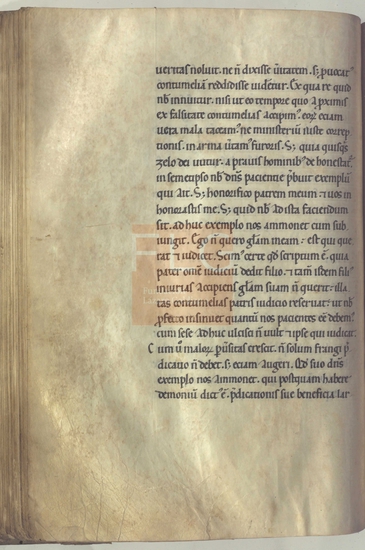 veritas noluit. ne ñ dixisse ũitatem. s; ꝓuocatꝰ
contumeliã reddidisse uideret᷑. Ex qua re quid
nb̃ innuitur. nisi ut eo tempore quo a ꝓximis
ex falsitate contumelias accipimꝰ. eoꝝ eciam
uera mala taceamꝰ. ne ministeriũ iuste correp
tionis. in arma ũtamꝰ furoris. S; quia quisqꝫ
zelo dei utitur. a prauis hominibꝰ de honestat᷑.
in semetipso nb̃ dñs pacientie p̃buit exemplũ
qui ait. S; honorifico patrem meum. ⁊ uos in
honorastis me. S; quid nb̃ ad ista faciendum
sit. ad huc exemplo nos ammonet cum sub
iungit. Ego ñ quero gl̃am meam. est qui que
rat ⁊ iudicet. Scimꝰ certe qd̃ scriptum ẽ. quia
pater om̃e iudiciũ dedit filio. ⁊ tam̃ idem filiꝰ
iniurias accipiens gl̃am suam ñ querit. illa
tas contumelias patris iudicio reseruat. ut nb̃
ꝓfecto insinuet quantũ nos pacientes eẽ debemꝰ.
cum sese adhuc ulcisci ñ uult ⁊ ipse qui iudicat.
Cum ũ maloꝝ ꝑuersitas crescit. ñ solum frangi p̃
dicatio ñ debet. s; eciam augeri. Qd̃ suo dñs
exemplo nos ammonet. qui postquam habere
demoniũ dictꝰ ẽ. p̃dicationis sue beneficia lar